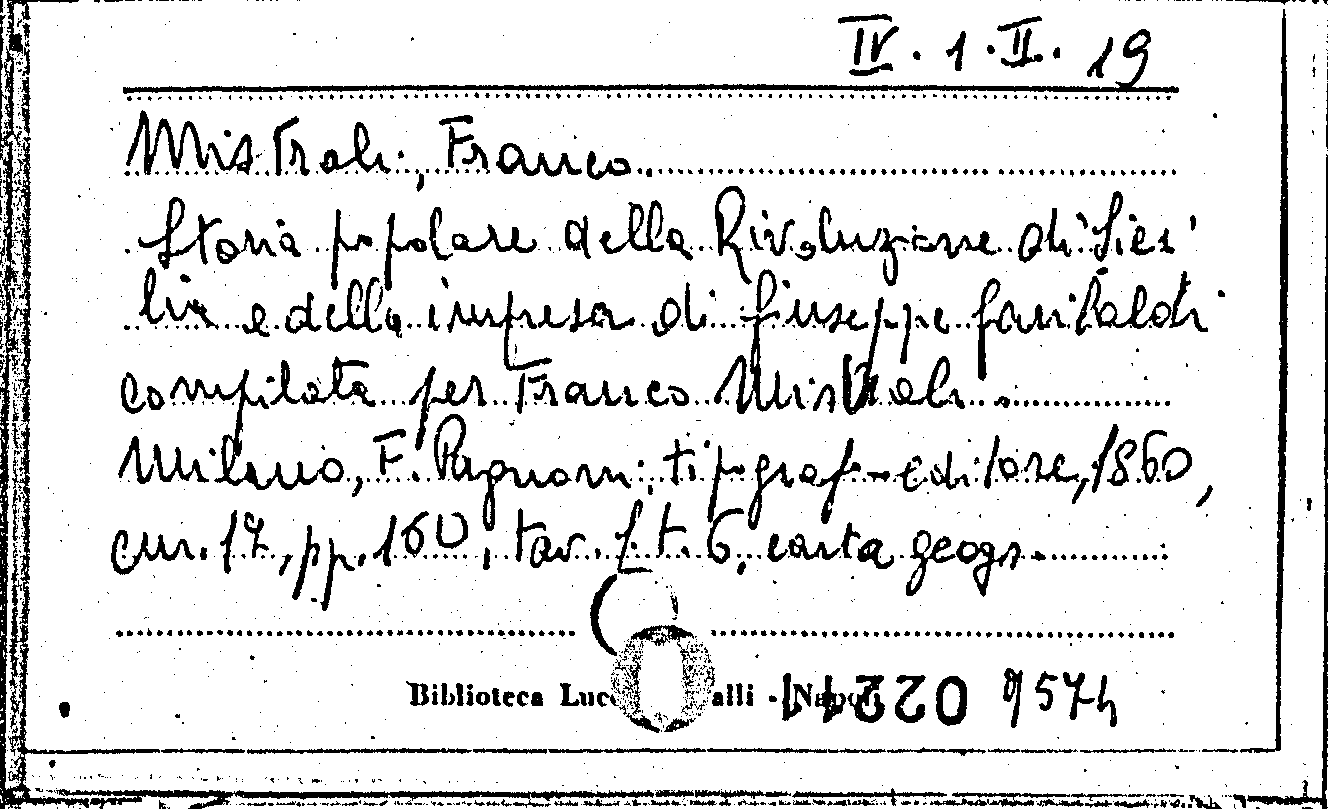 IV. 1. II. 19
Mistrali, Franco.
Storia popolare della Rivoluzione di Sici
lia e della impresa di Giuseppe Garibaldi
compilata per Franco Mistrali.
Milano, F. Pagnoni, tipografo-editore, 1860,
cm. 17, pp. 160, tav. f. t. 6, carta geogr.
Biblioteca alli - Napoli